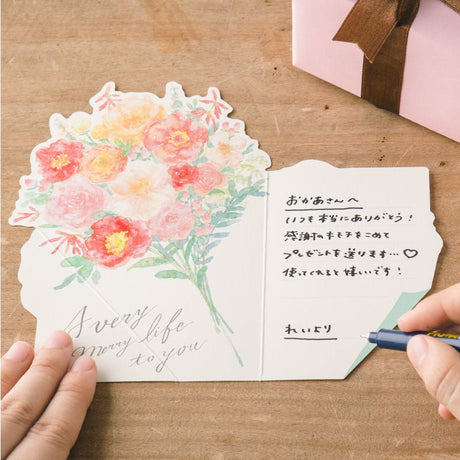 A very
Merry life
to you
おかあさんへ
いつも本当にありがとう!
感謝のキモチをこめて
プレゼントを送ります…♡
使ってくれると嬉しいです!
れいより